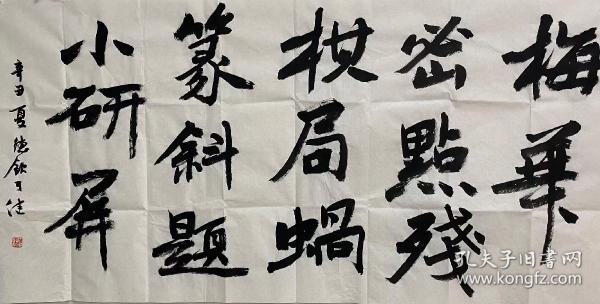 梅華
密點殘
棋局蝸
篆斜題
小研屏
辛丑夏
孔夫子旧书网
www.kongfz.com